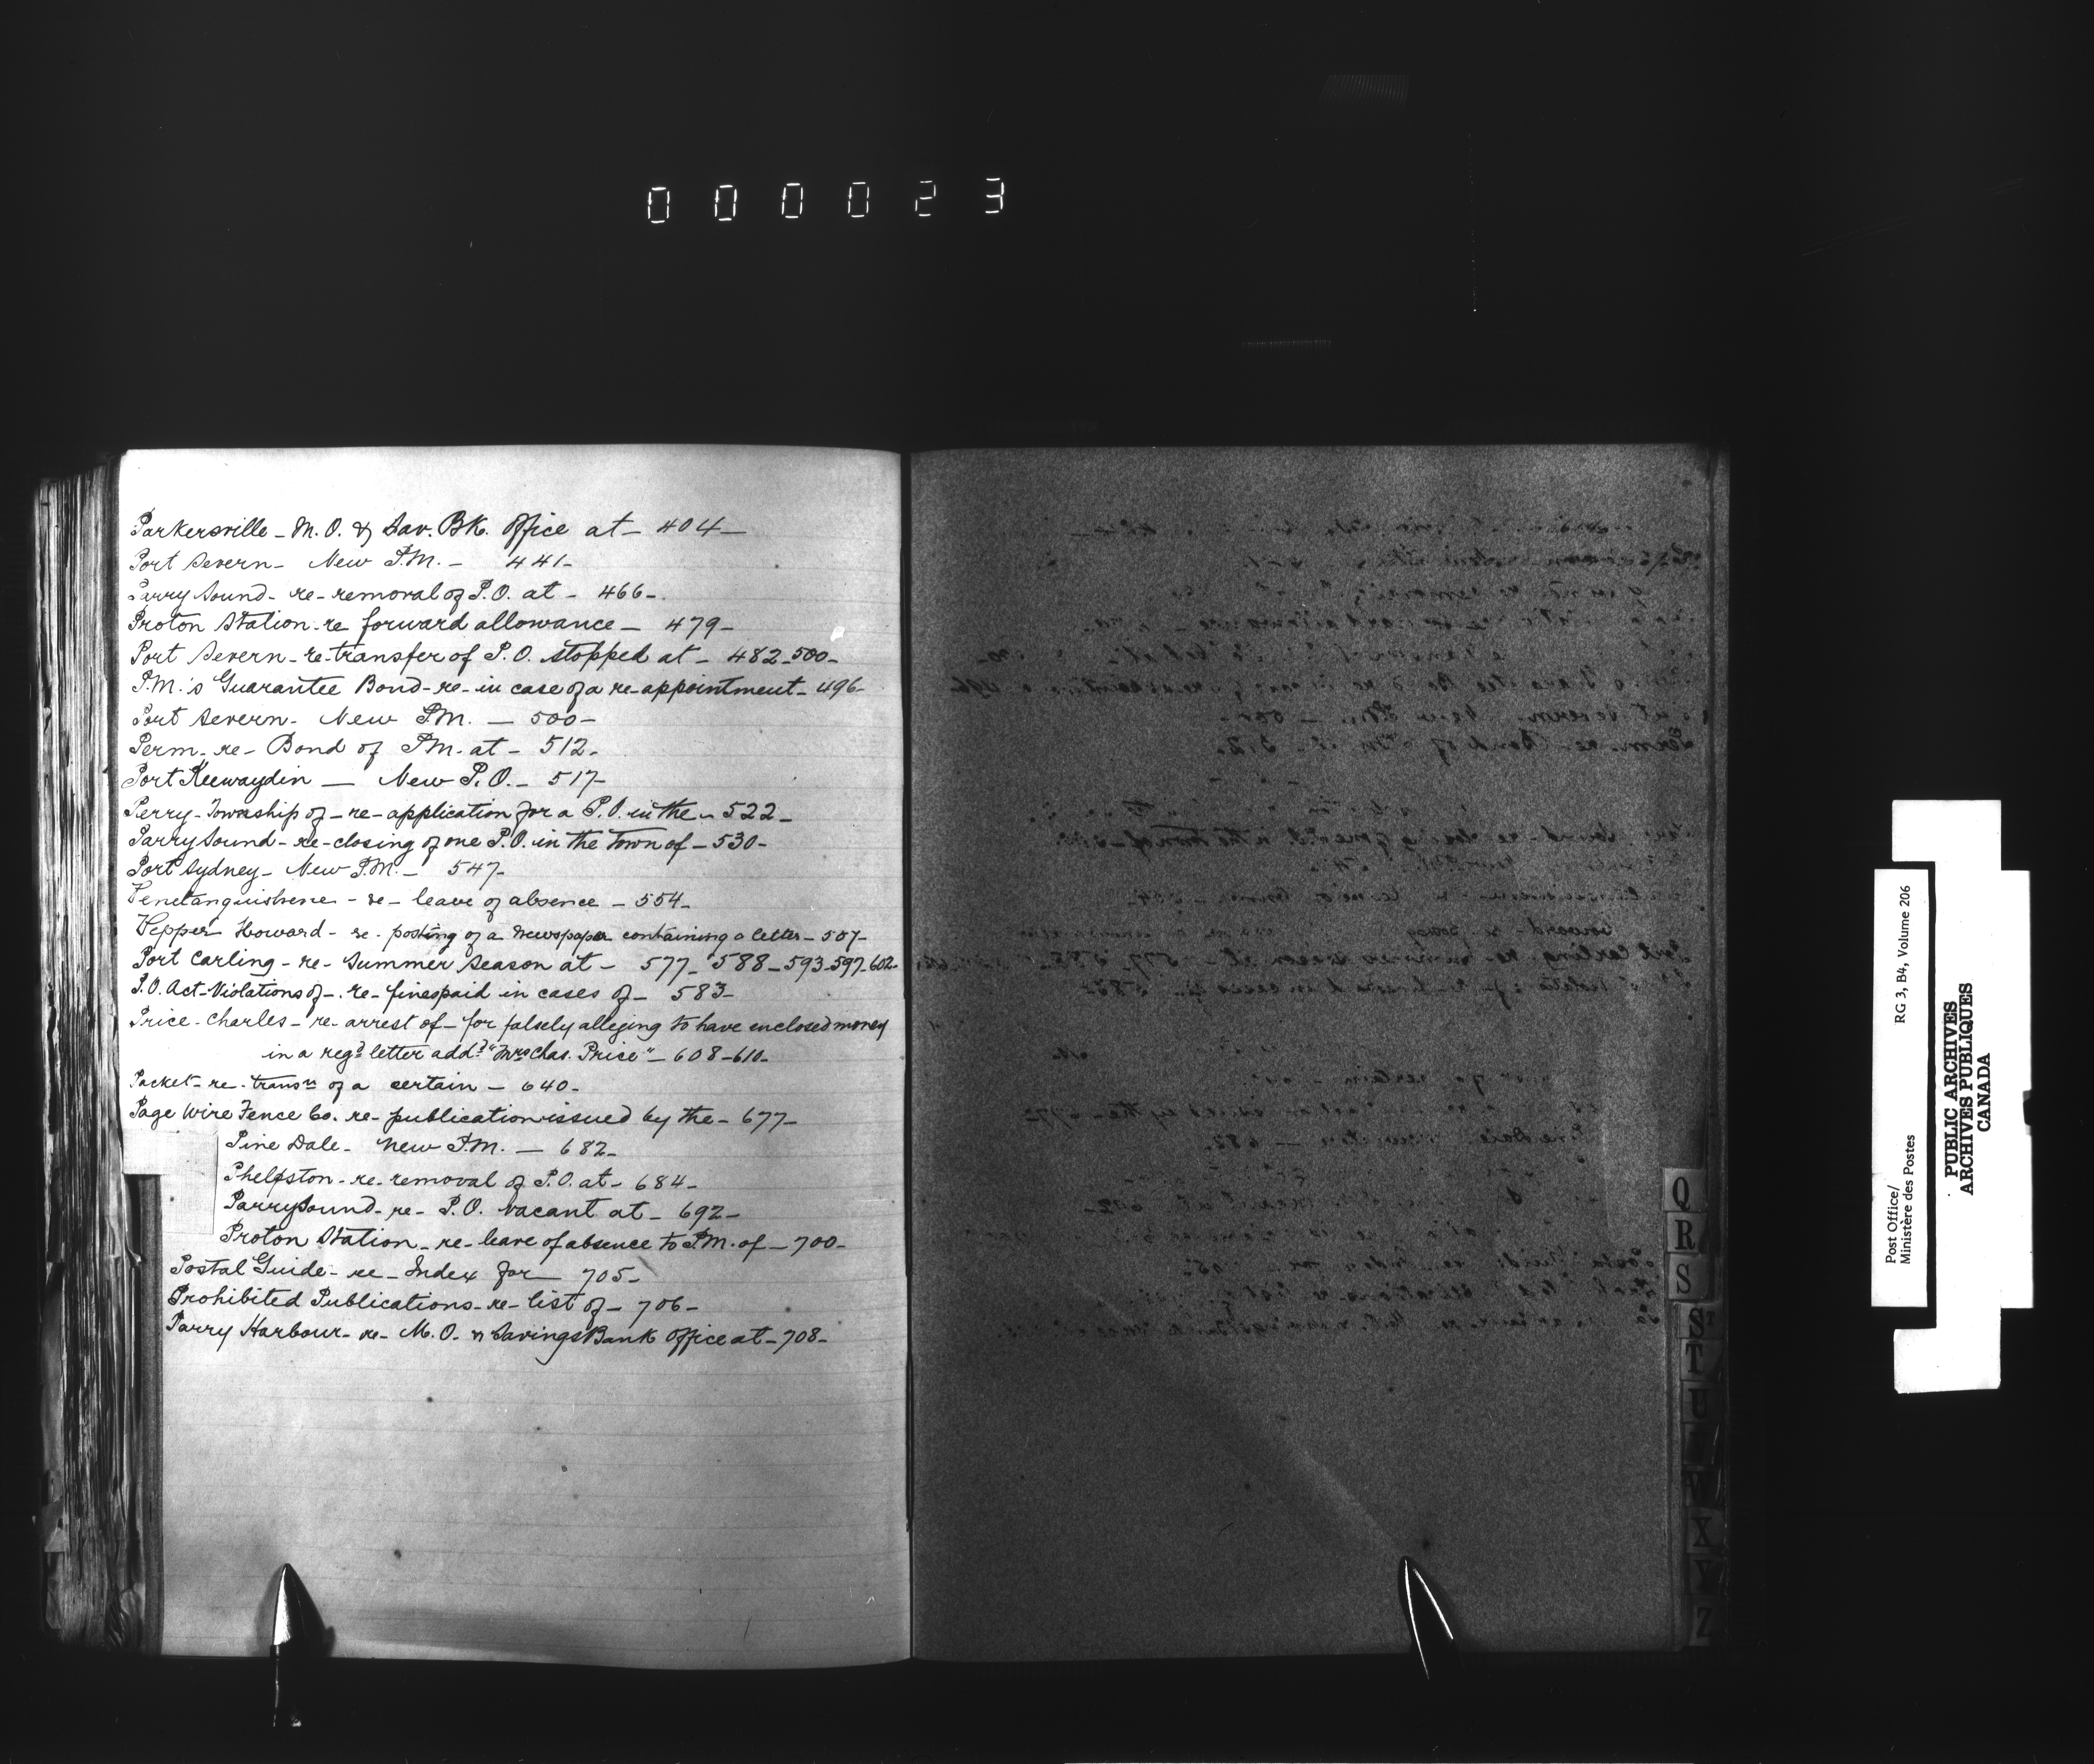 000023
Parkersville - M.O. & Sav. Bk. Office at - 404 -
Port Severn - New P.M. - 441 -
Parry Sound - re - removal of P.O. at - 466 -
Proton Station - re forward allowance - 479 -
Port Severn - re - transfer of P.O. stopped at - 482 - 500 -
P.M.'s Guarantee Bond - re - in case of a re-appointment - 496 -
Port Severn - New P.M. - 500 -
Perm - re - Bond of P.M. at - 512 -
Port Keewaydin - New P.O. - 517 -
Perry - Township of - re - application for a P.O. in the - 522 -
Parry Sound - re - closing of one P.O. in the town of - 530 -
Port Sydney - New P.M. - 547 -
Penetanguishene - re - leave of absence - 554 -
Pepper Howard - re - posting of a newspaper containing a letter - 507 -
Port Carling - re - Summer Season at - 577 - 588 - 593 - 597 - 602 -
P.O. Act - Violations of - re - fines paid in cases of - 583 -
Price - Charles - re - arrest of - for falsely alleging to have enclosed money
in a regd letter addd "Mrs Chas. Price" - 608 - 610 -
Packet - re - transn of a certain - 640 -
Page Wire Fence Co. re - publication issued by the - 677 -
Pine Dale - New P.M. - 682 -
Phelpston - re - removal of P.O. at - 684 -
Parry Sound - re - P.O. vacant at - 692 -
Proton Station - re - leave of absence to P.M. of - 700 -
Postal Guide - re - Index for - 705 -
Prohibited Publications - re - list of - 706 -
Parry Harbour - re - M.O. & Savings Bank Office at - 708 -
Q
R
S
ST
T
U
W
X
Y
Z
Post Office/
Ministère des Postes
RG 3, B4, Volume 206
PUBLIC ARCHIVES
ARCHIVES PUBLIQUES
CANADA